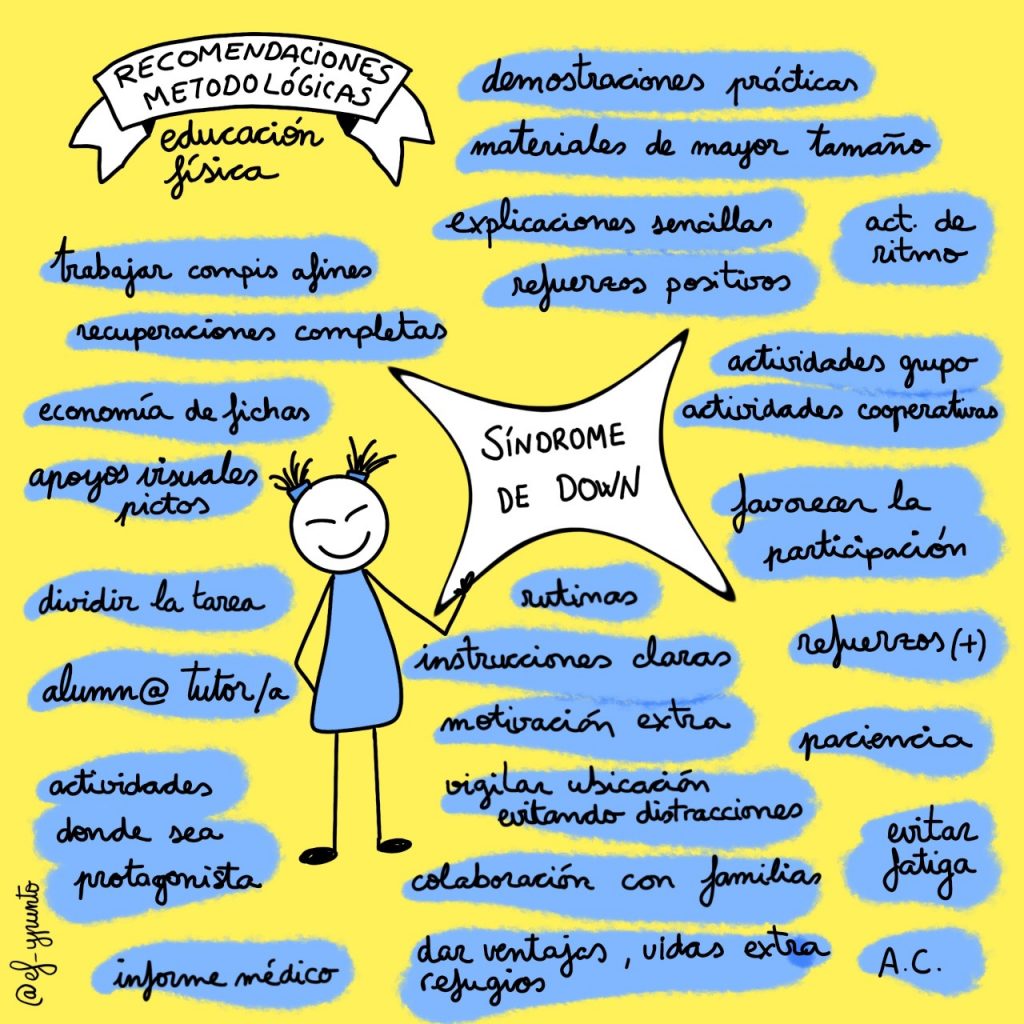 RECOMENDACIONES
METODOLÓGICAS
educación
física
demostraciones prácticas
materiales de mayor tamaño
explicaciones sencillas
act. de
ritmo
refuerzos positivos
trabajar compis afines
recuperaciones completas
economía de fichas
apoyos visuales
pictos
dividir la tarea
alumn@ tutor/a
actividades
donde sea
protagonista
informe médico
SÍNDROME
DE DOWN
actividades grupo
actividades cooperativas
favorecer la
participación
rutinas
instrucciones claras
motivación extra
vigilar ubicación
evitando distracciones
colaboración con familias
dar ventajas, vidas extra
refugios
refuerzos (+)
paciencia
evitar
fatiga
A.C.
@ef-ypunto